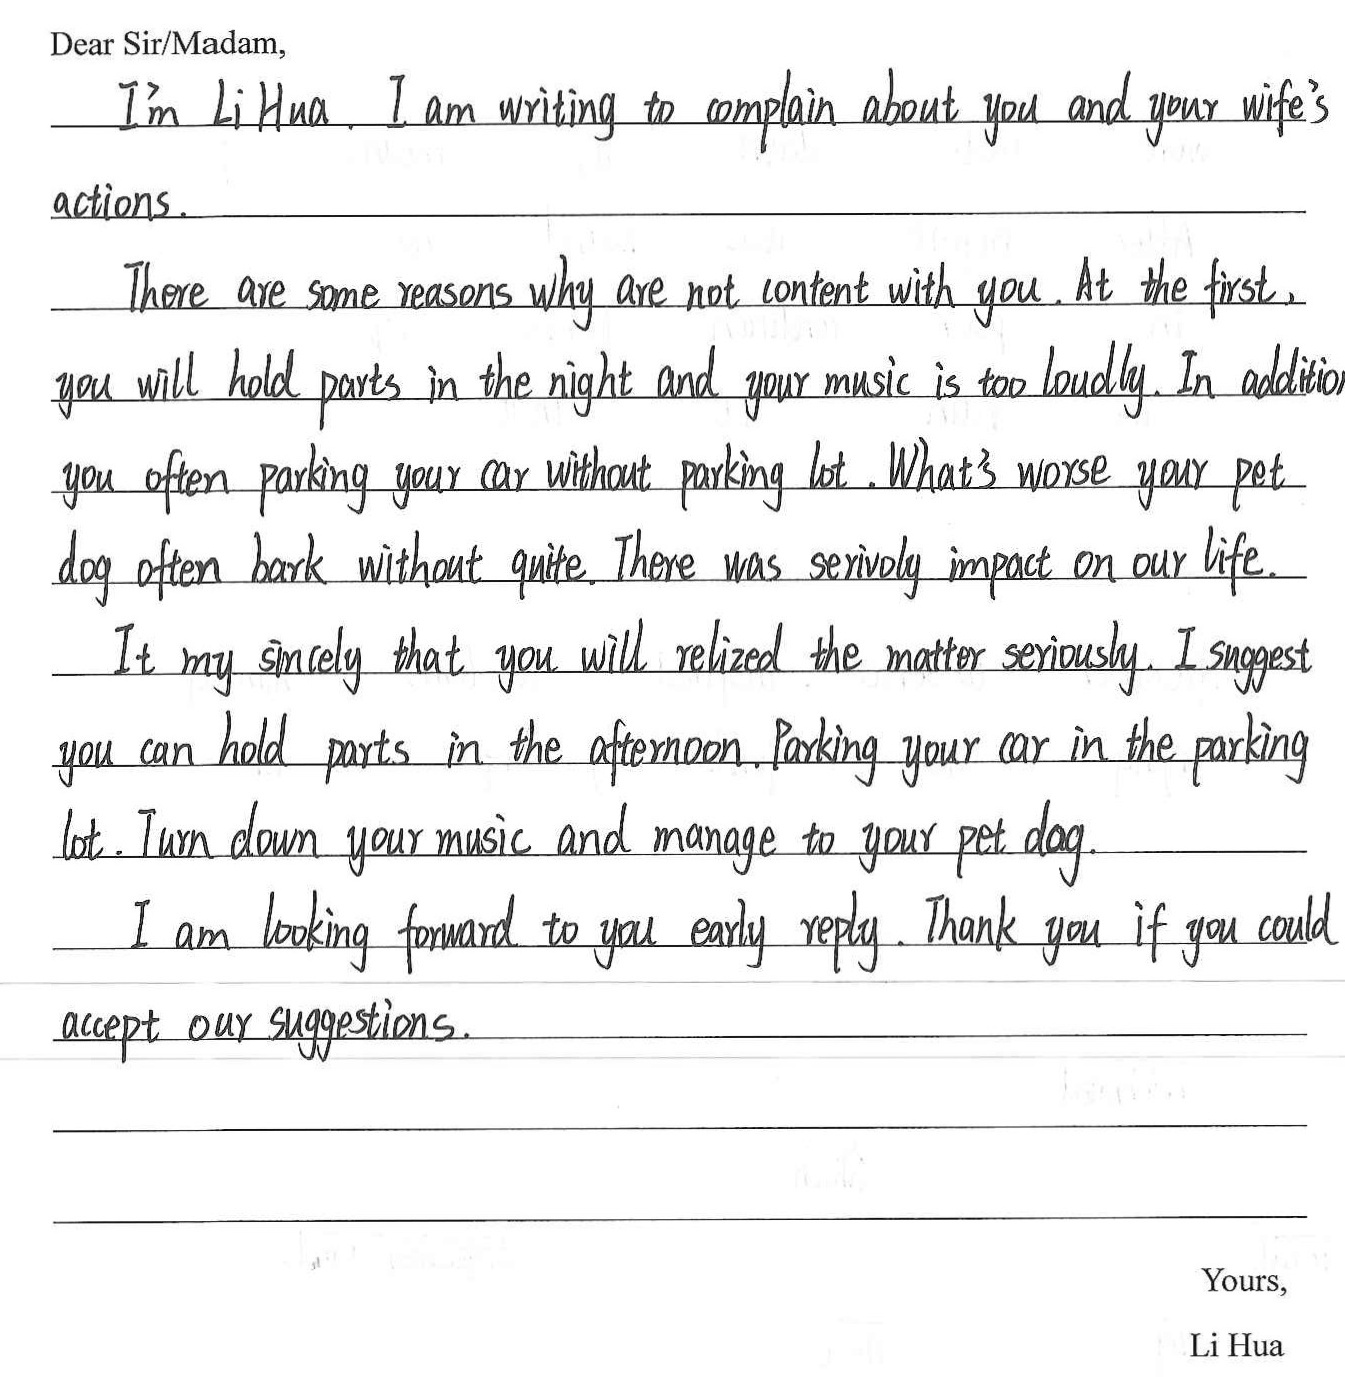 Dear Sir/Madam,
I'm Li Hua. I am writing to complain about you and your wife's
actions.
There are some reasons why are not content with you. At the first,
you will hold parts in the night and your music is too loudly. In addition
you often parking your car without parking lot. What's worse your pet
dog often bark without quite. There was serivoly impact on our life.
It my sincely that you will relized the matter seriously. I suggest
you can hold parts in the afternoon. Parking your car in the parking
lot. Turn down your music and manage to your pet dog.
I am looking forward to you early reply. Thank you if you could
accept our suggestions.
Yours,
Li Hua